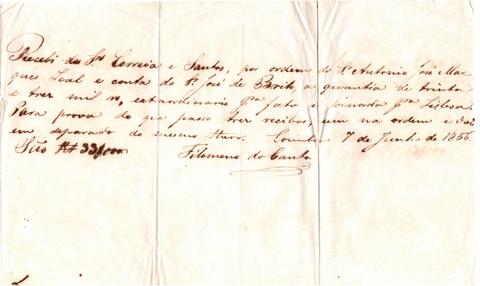 Recebi dos Srs Correia e Santos, por ordem do Sr Antonio José Mar
ques Leal e conta do Sr José de Brito, a quantia de trinta
e tres mil rs, extraordinario pa fato e jornada pa Lisboa.
Para prova do que passo tres recibos um na ordem e dois
em separado do mesmo theor. Coimbra 7 de Junho de 1866.
São Rs 33,000
Filomeno do Canto